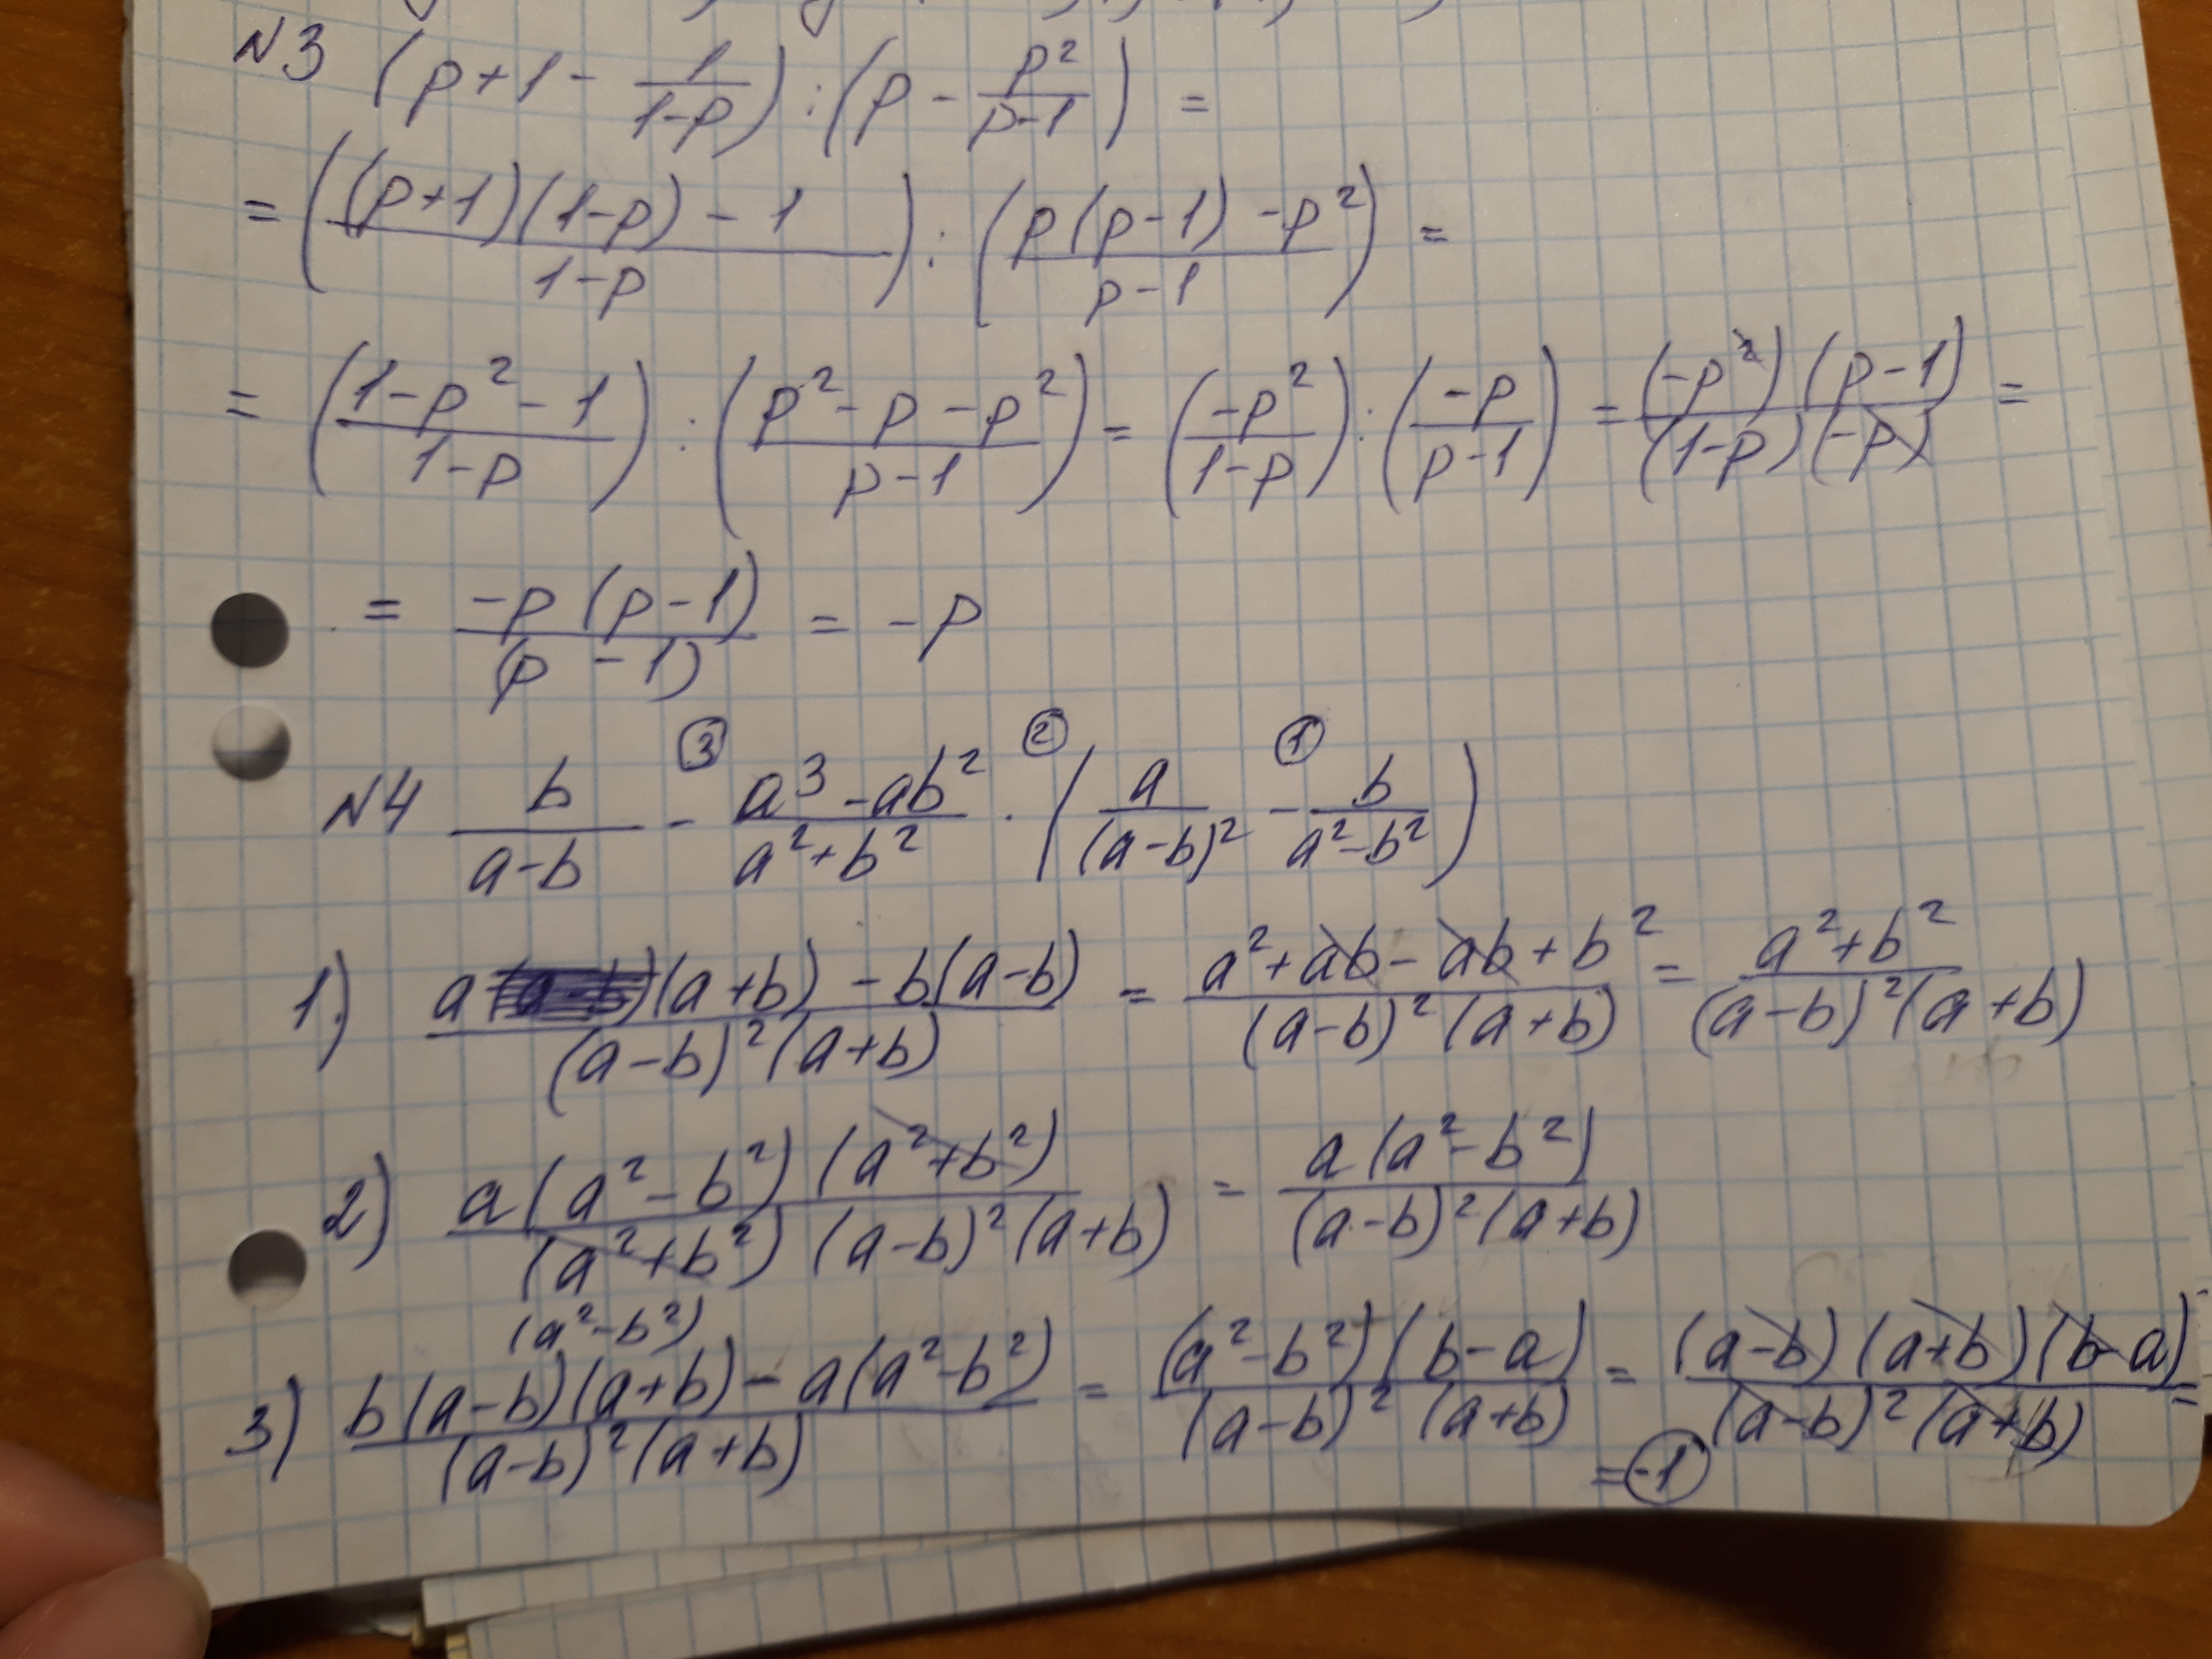 N3 (p+1 - 1/(1-p)) : (p - p²/(p-1)) =
= (((p+1)(1-p) - 1)/(1-p)) : ((p(p-1) - p²)/(p-1)) =
= ((1-p²-1)/(1-p)) : ((p²-p-p²)/(p-1)) = (-p²/(1-p)) : (-p/(p-1)) = ((-p²)(p-1))/((1-p)(-p)) =
= (-p(p-1))/((p-1)) = -p
N4 b/(a-b) ③ - (a³-ab²)/(a²+b²) ② · (a/(a-b)² ① - b/(a²-b²))
1) (a(a+b) - b(a-b))/((a-b)²(a+b)) = (a²+ab-ab+b²)/((a-b)²(a+b)) = (a²+b²)/((a-b)²(a+b))
2) (a(a²-b²)(a²+b²))/((a²+b²)(a-b)²(a+b)) = (a(a²-b²))/((a-b)²(a+b))
(a²-b²)
3) (b(a-b)(a+b) - a(a²-b²))/((a-b)²(a+b)) = ((a²-b²)(b-a))/((a-b)²(a+b)) = ((a-b)(a+b)(b-a))/((a-b)²(a+b)) =
= -1